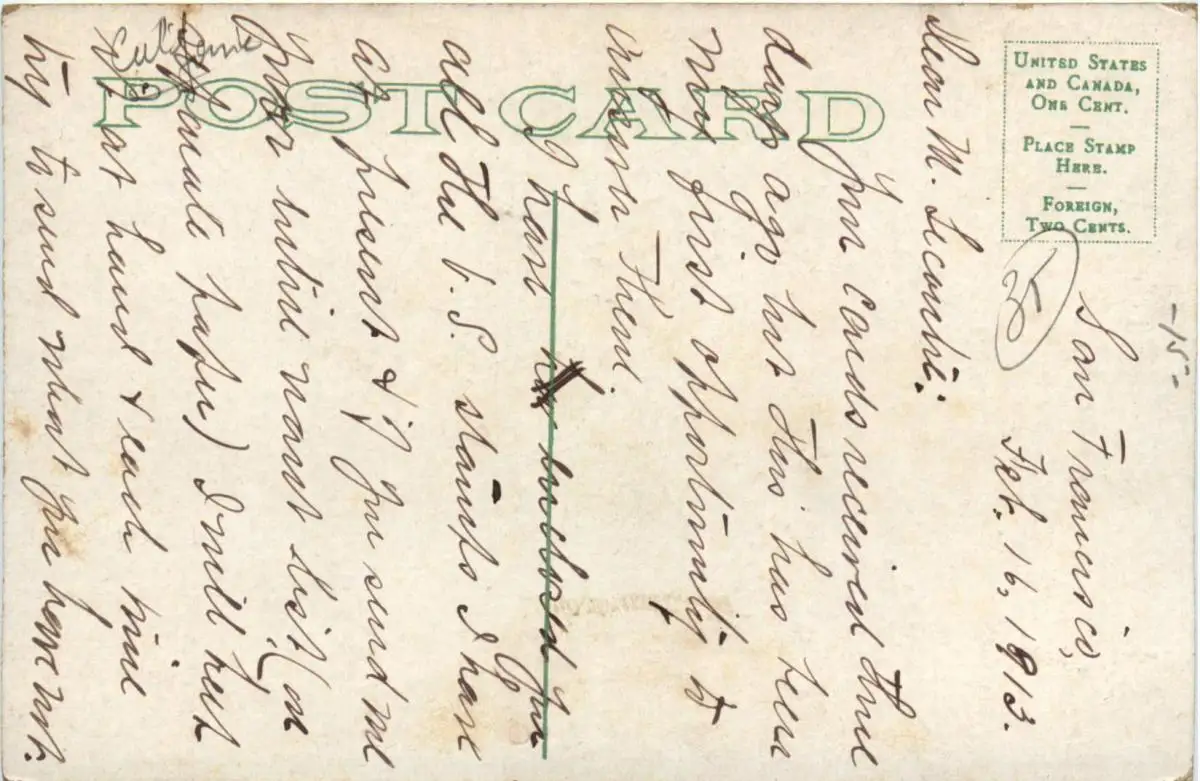 POST CARD
UNITED STATES
AND CANADA,
ONE CENT.
PLACE STAMP
HERE.
FOREIGN,
TWO CENTS.
-15-
50
San Francisco,
Feb. 16, 1913.
Dear M. Lecomte:
Your cards received three
days ago but this has been
my first opportunity to
answer them.
I have enclosed you
all the U.S. stamps I have
at present & if you send me
your entire want list (on
separate paper) I will keep
it at hand & each time
try to send what you have not.